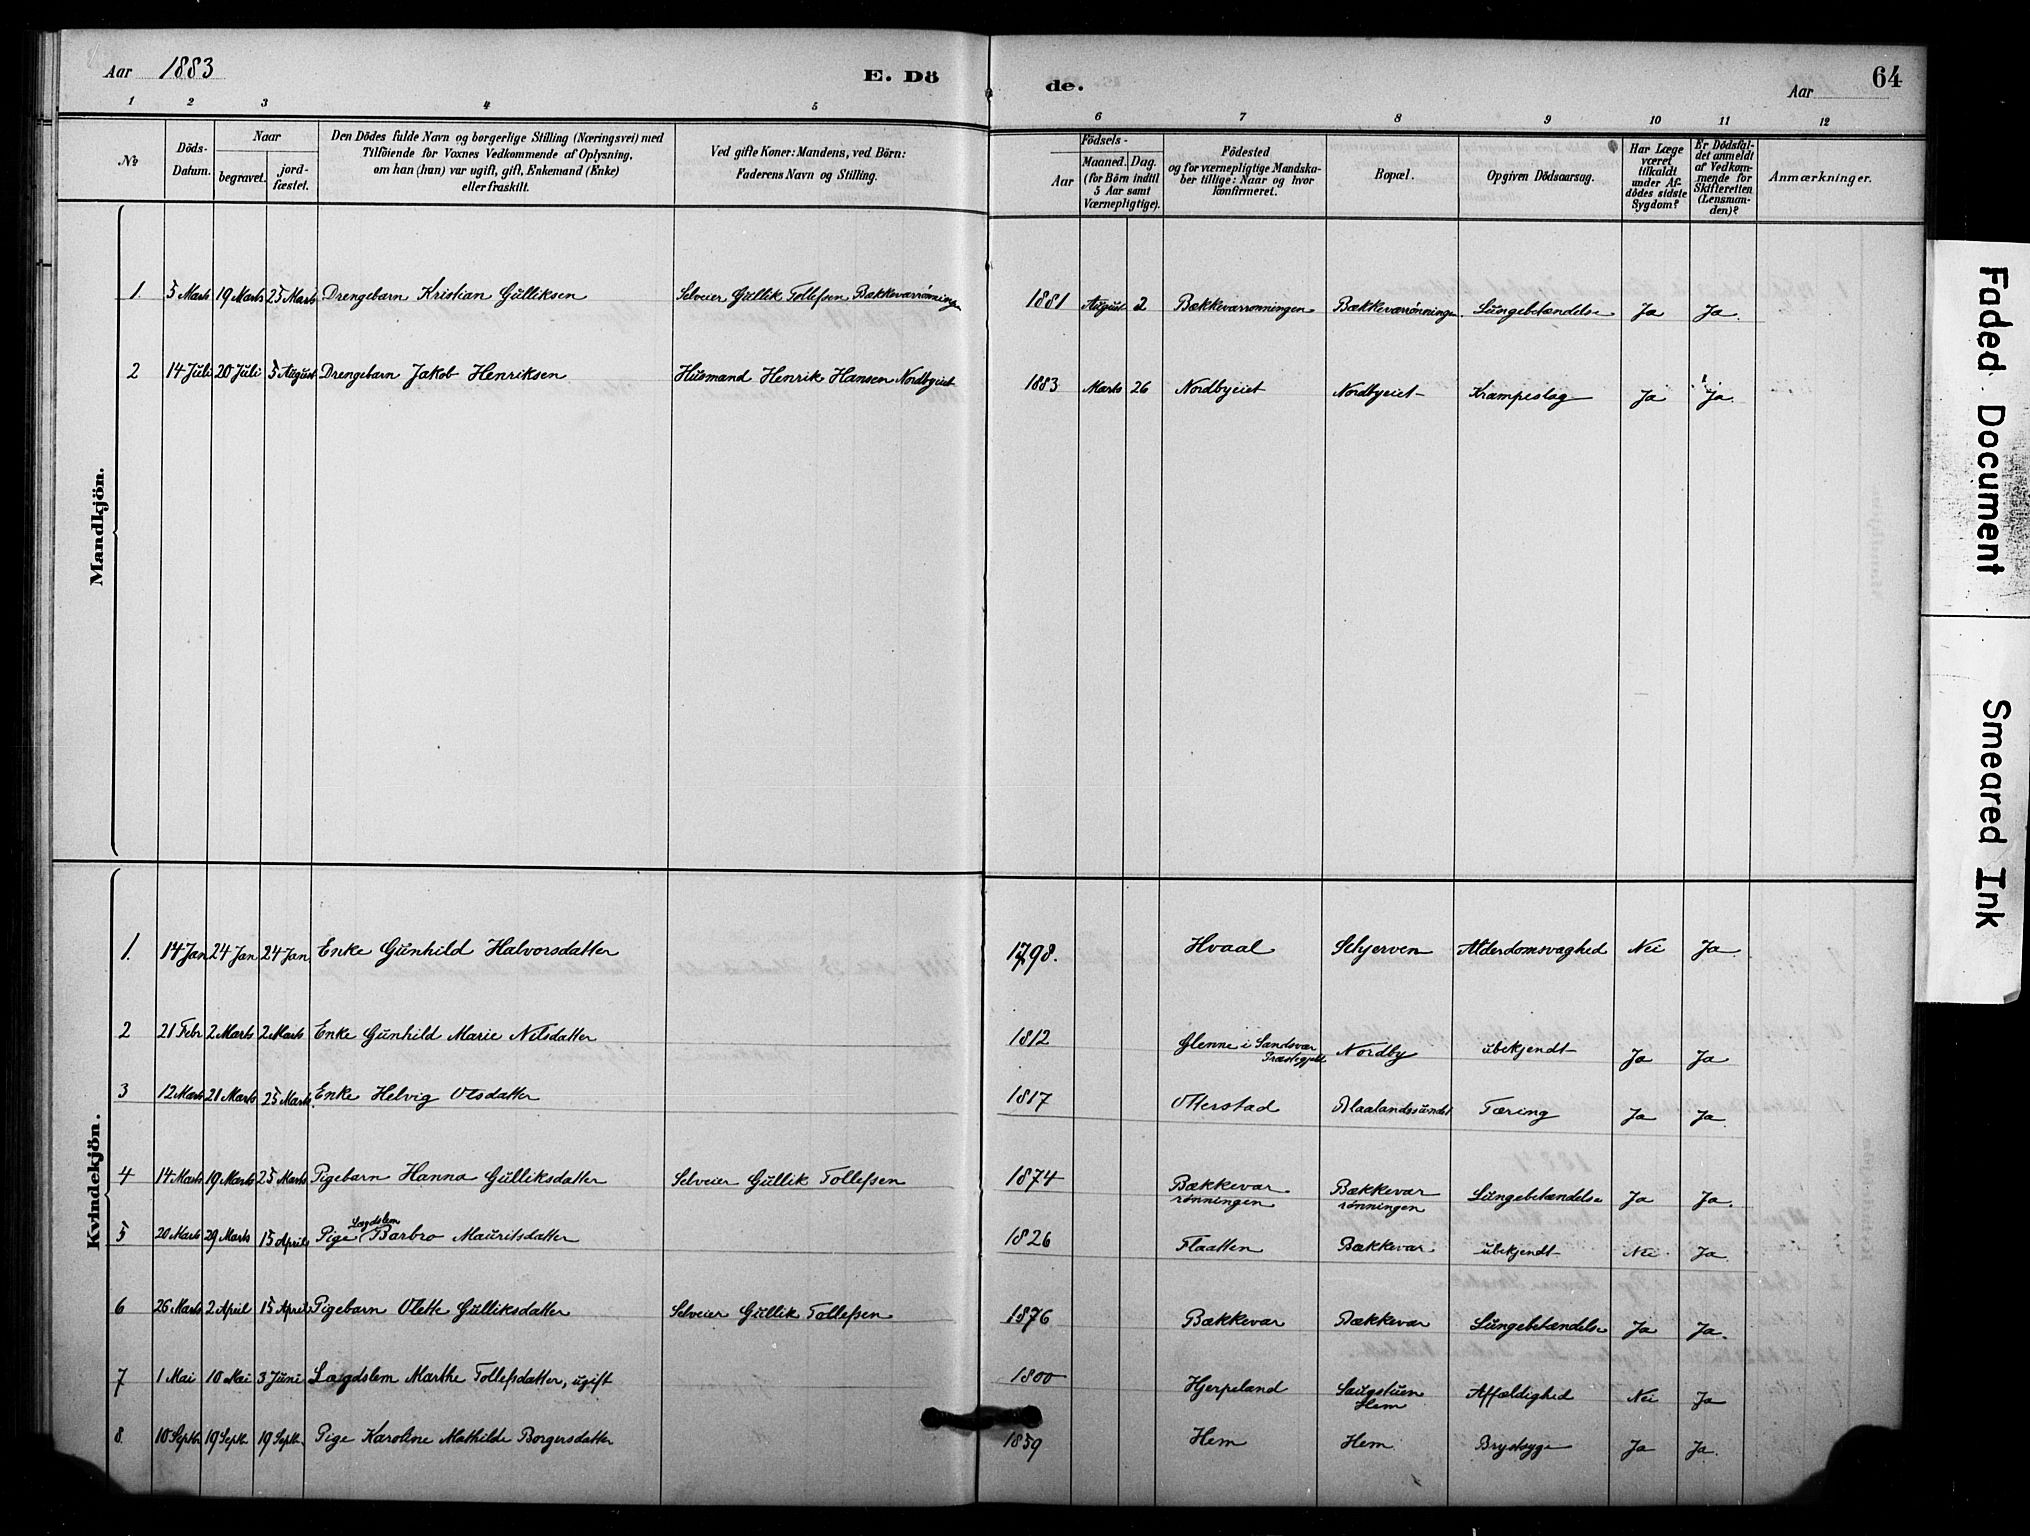 Aar 1883
E. Dö
de.
Aar
64
1 2 3 4 5 6 7 8 9 10 11 12
No
Döds-
Datum.
Naar
begravet.
jord-
fæstet.
Den Dödes fulde Navn og borgerlige Stilling (Næringsvei) med
Tilföiende for Voxnes Vedkommende af Oplysning,
om han (hun) var ugift, gift, Enkemand (Enke)
eller fraskilt.
Ved gifte Koner: Mandens, ved Börn:
Faderens Navn og Stilling.
Födsels-
Aar
Maaned. Dag.
(for Börn indtil
5 Aar samt
Værnepligtige).
Födested
og for værnepligtige Mandska-
ber tillige: Naar og hvor
konfirmeret.
Bopæl.
Opgiven Dödsaarsag.
Har Læge
været
tilkaldt
under Af-
dödes sidste
Sygdom?
Er Dödsfal-
det anmeldt
af Vedkom-
mende for
Skifteretten
(Lensman-
den)?
Anmærkninger.
Mandkjön.
1 5 Marts 19 Marts 25 Marts Drengebarn Kristian Gulliksen Selveier Gullik Tollefsen Bækkevarrønningen 1881 August 2 Bækkevarrønningen Bækkevarrønningen Lungebetændelse Ja Ja
2 14 Juli 20 Juli 5 August Drengebarn Jakob Henriksen Husmand Henrik Hansen Nordbyeiet 1883 Marts 26 Nordbyeiet Nordbyeiet Krampeslag Ja Ja.
Kvindekjön.
1. 14 Jan 24 Jan 24 Jan Enke Gunhild Halvorsdatter 1798. Hvaal Schjerven Alderdomsvaghed Nei Ja
2 21 Febr 2 Marts 2 Marts Enke Gunhild Marie Nilsdatter 1812 Glenne i Sandsvær Præstegjeld Nordby ubekjendt Ja Ja
3 12 Marts 21 Marts 25 Marts Enke Helvig Olsdatter 1817 Otterstad Blaalandssundet Tæring Ja Ja.
4 14 Marts 19 Marts 25 Marts Pigebarn Hanna Gulliksdatter Selveier Gullik Tollefsen 1874 Bækkevar rønningen Bækkevar rønningen Lungebetændelse Ja Ja.
5 20 Marts 29 Marts 15 April Pige Lægdslem Barbro Mauritsdatter 1826 Flaatten Bækkevar ubekjendt Nei Ja
6 26 Marts 2 April 15 April Pigebarn Olette Gulliksdatter Selveier Gullik Tollefsen 1876 Bækkevar Bækkevar Lungebetændelse Ja Ja.
7 1 Mai 10 Mai 3 Juni Lægdslem Marthe Tollefsdatter, ugift 1800 Hjerpeland Saugstuen Hem Affældighed Nei Ja
8. 10 Septbr 19 Septr. 19 Septbr. Pige Karoline Mathilde Borgersdatter 1859 Hem Hem Brystsyge Ja Ja.
Faded Document
Smeared Ink